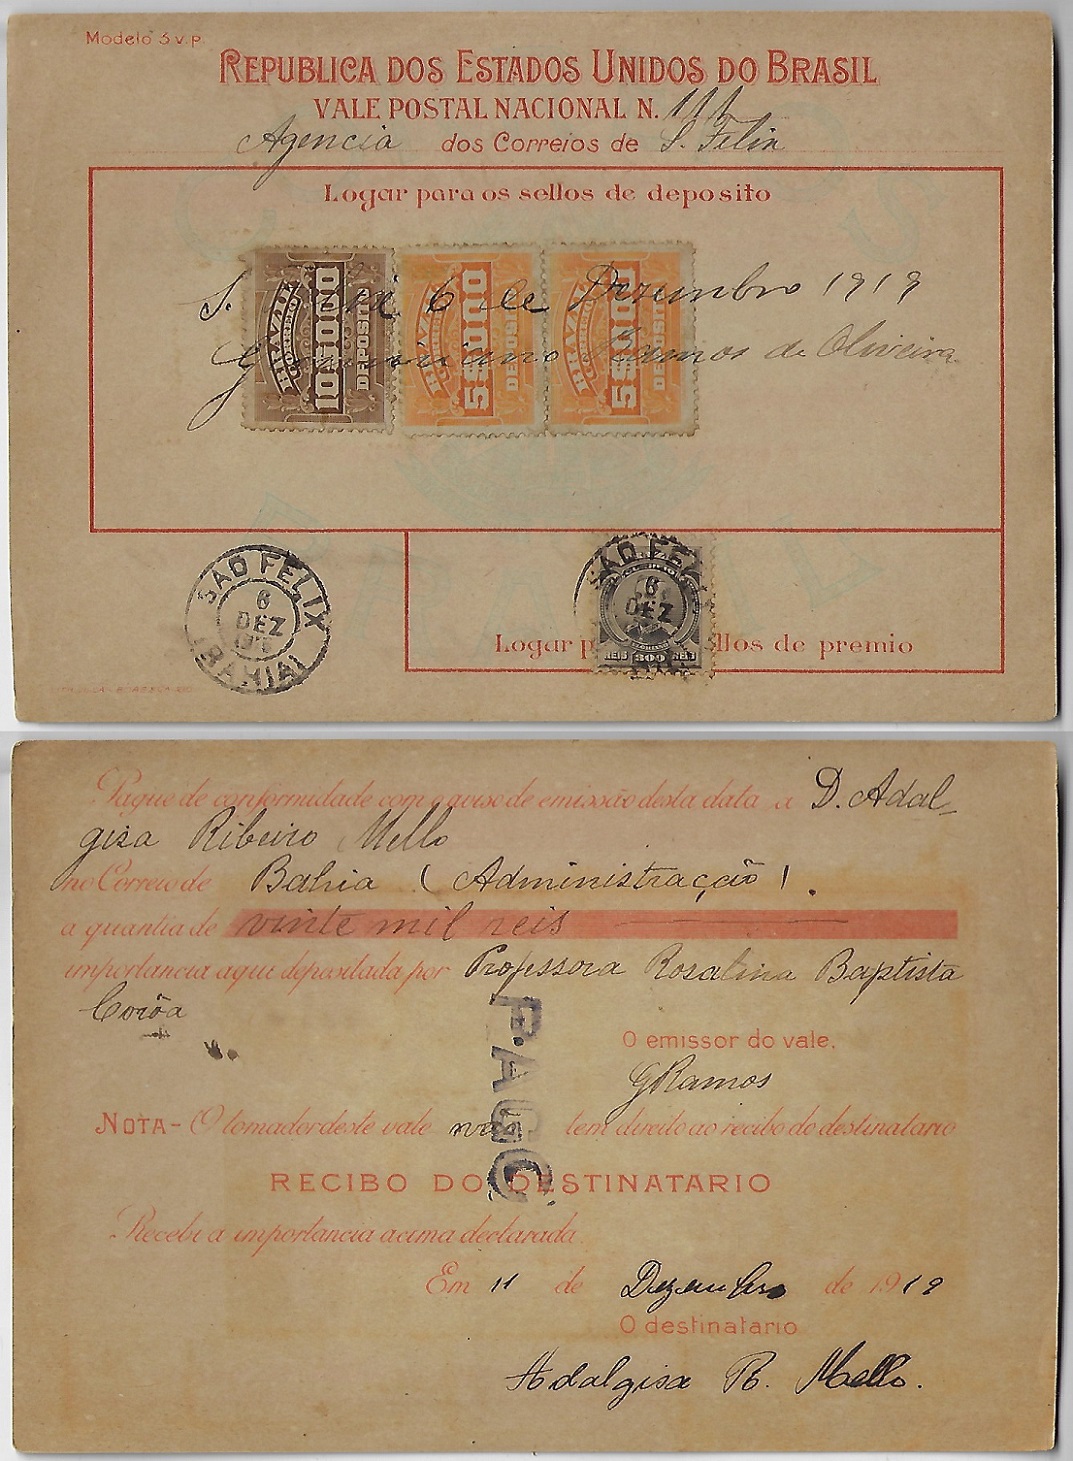 Modelo 3 v.p.
REPUBLICA DOS ESTADOS UNIDOS DO BRASIL
VALE POSTAL NACIONAL N. 111
Agencia dos Correios de S. Felix
Logar para os sellos de deposito
BRAZIL CORREIO 10$000 DEPOSITO
BRAZIL CORREIO 5$000 DEPOSITO
BRAZIL CORREIO 5$000 DEPOSITO
S. Felix 6 de Dezembro 1919
Ramos de Oliveira
SÃO FELIX
6
DEZ
(BAHIA)
SÃO FELIX
6
DEZ
REIS 300 REIS
Logar p sellos de premio
Pague de conformidade com o aviso de emissão desta data a D. Adal-
gisa Ribeiro Mello
no Correio de Bahia (Administração).
a quantia de vinte mil reis
importancia aqui depositada por Professora Rosalina Baptista
PAGO
O emissor do vale,
GRamos
NOTA - O tomador deste vale não tem direito ao recibo do destinatario
RECIBO DO DESTINATARIO
Recebi a importancia acima declarada.
Em 11 de Dezembro de 1919
O destinatario
Adalgisa R. Mello.